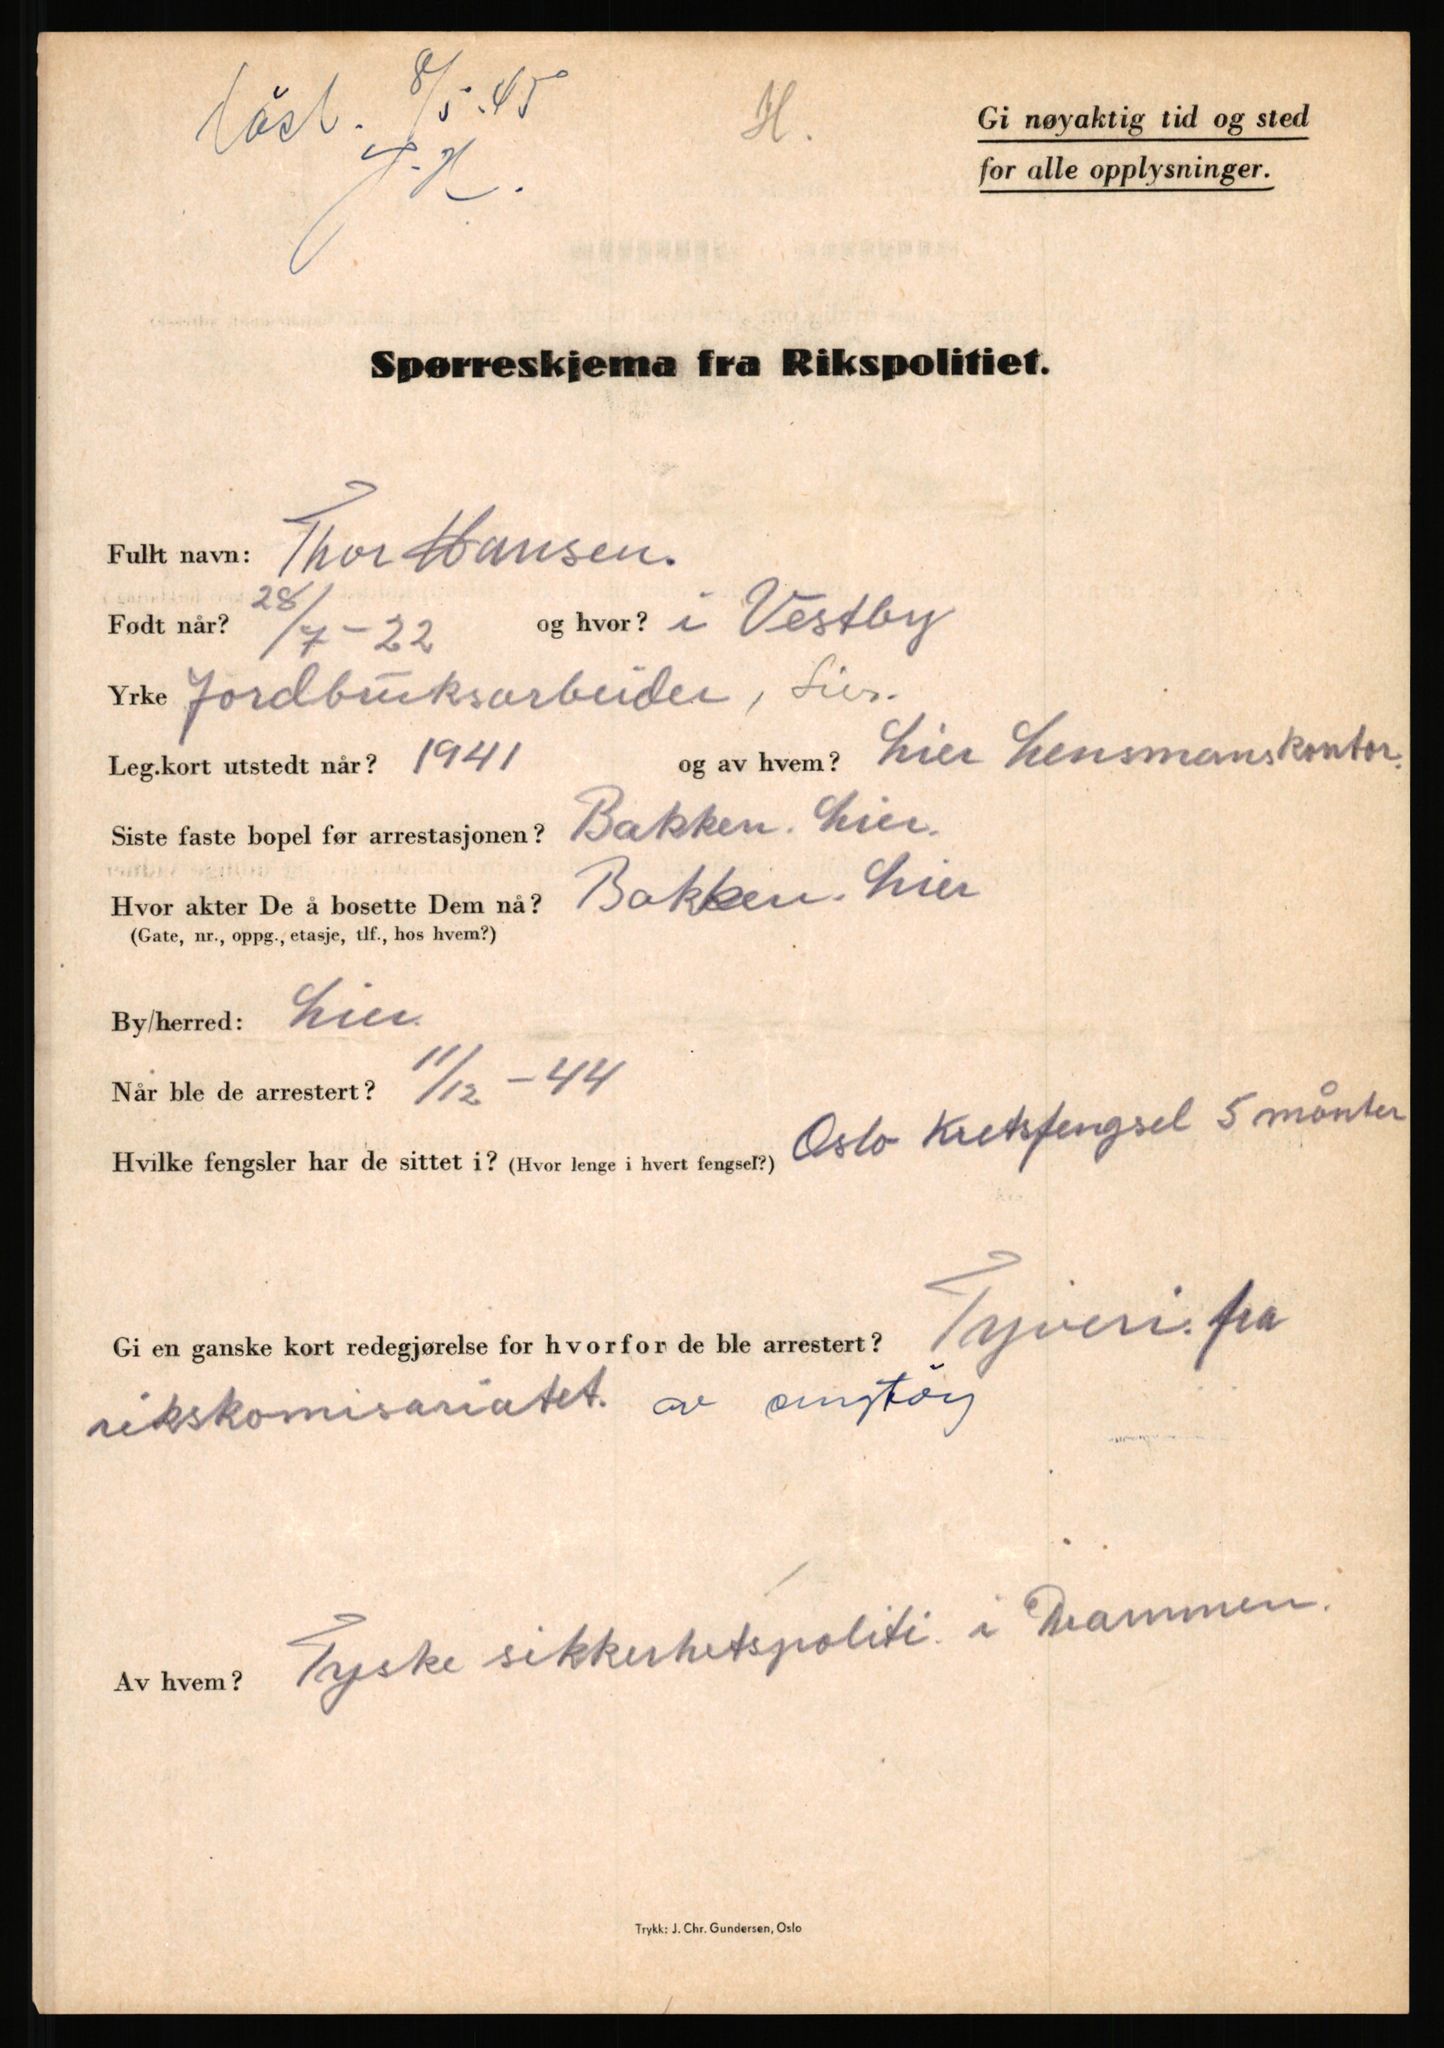 løsl. 8/5-45
H.
Gi nøyaktig tid og sted
for alle opplysninger.
Spørreskjema fra Rikspolitiet.
Fullt navn: Thor Hansen.
Født når? 28/7-22 og hvor? i Vestby
Yrke Jordbruksarbeider, Lier.
Leg.kort utstedt når? 1941 og av hvem? Lier Lensmanskontor.
Siste faste bopel før arrestasjonen? Bakken. Lier.
Hvor akter De å bosette Dem nå? Bakken. Lier
(Gate, nr., oppg., etasje, tlf., hos hvem?)
By/herred: Lier.
Når ble de arrestert? 11/12-44
Hvilke fengsler har de sittet i? (Hvor lenge i hvert fengsel?) Oslo Kretsfengsel 5 månter
Gi en ganske kort redegjørelse for hvorfor de ble arrestert? Tyveri. fra
rikskomisariatet. av
Av hvem? Tyske sikkerhetspoliti. i Drammen.
Trykk: J. Chr. Gundersen, Oslo